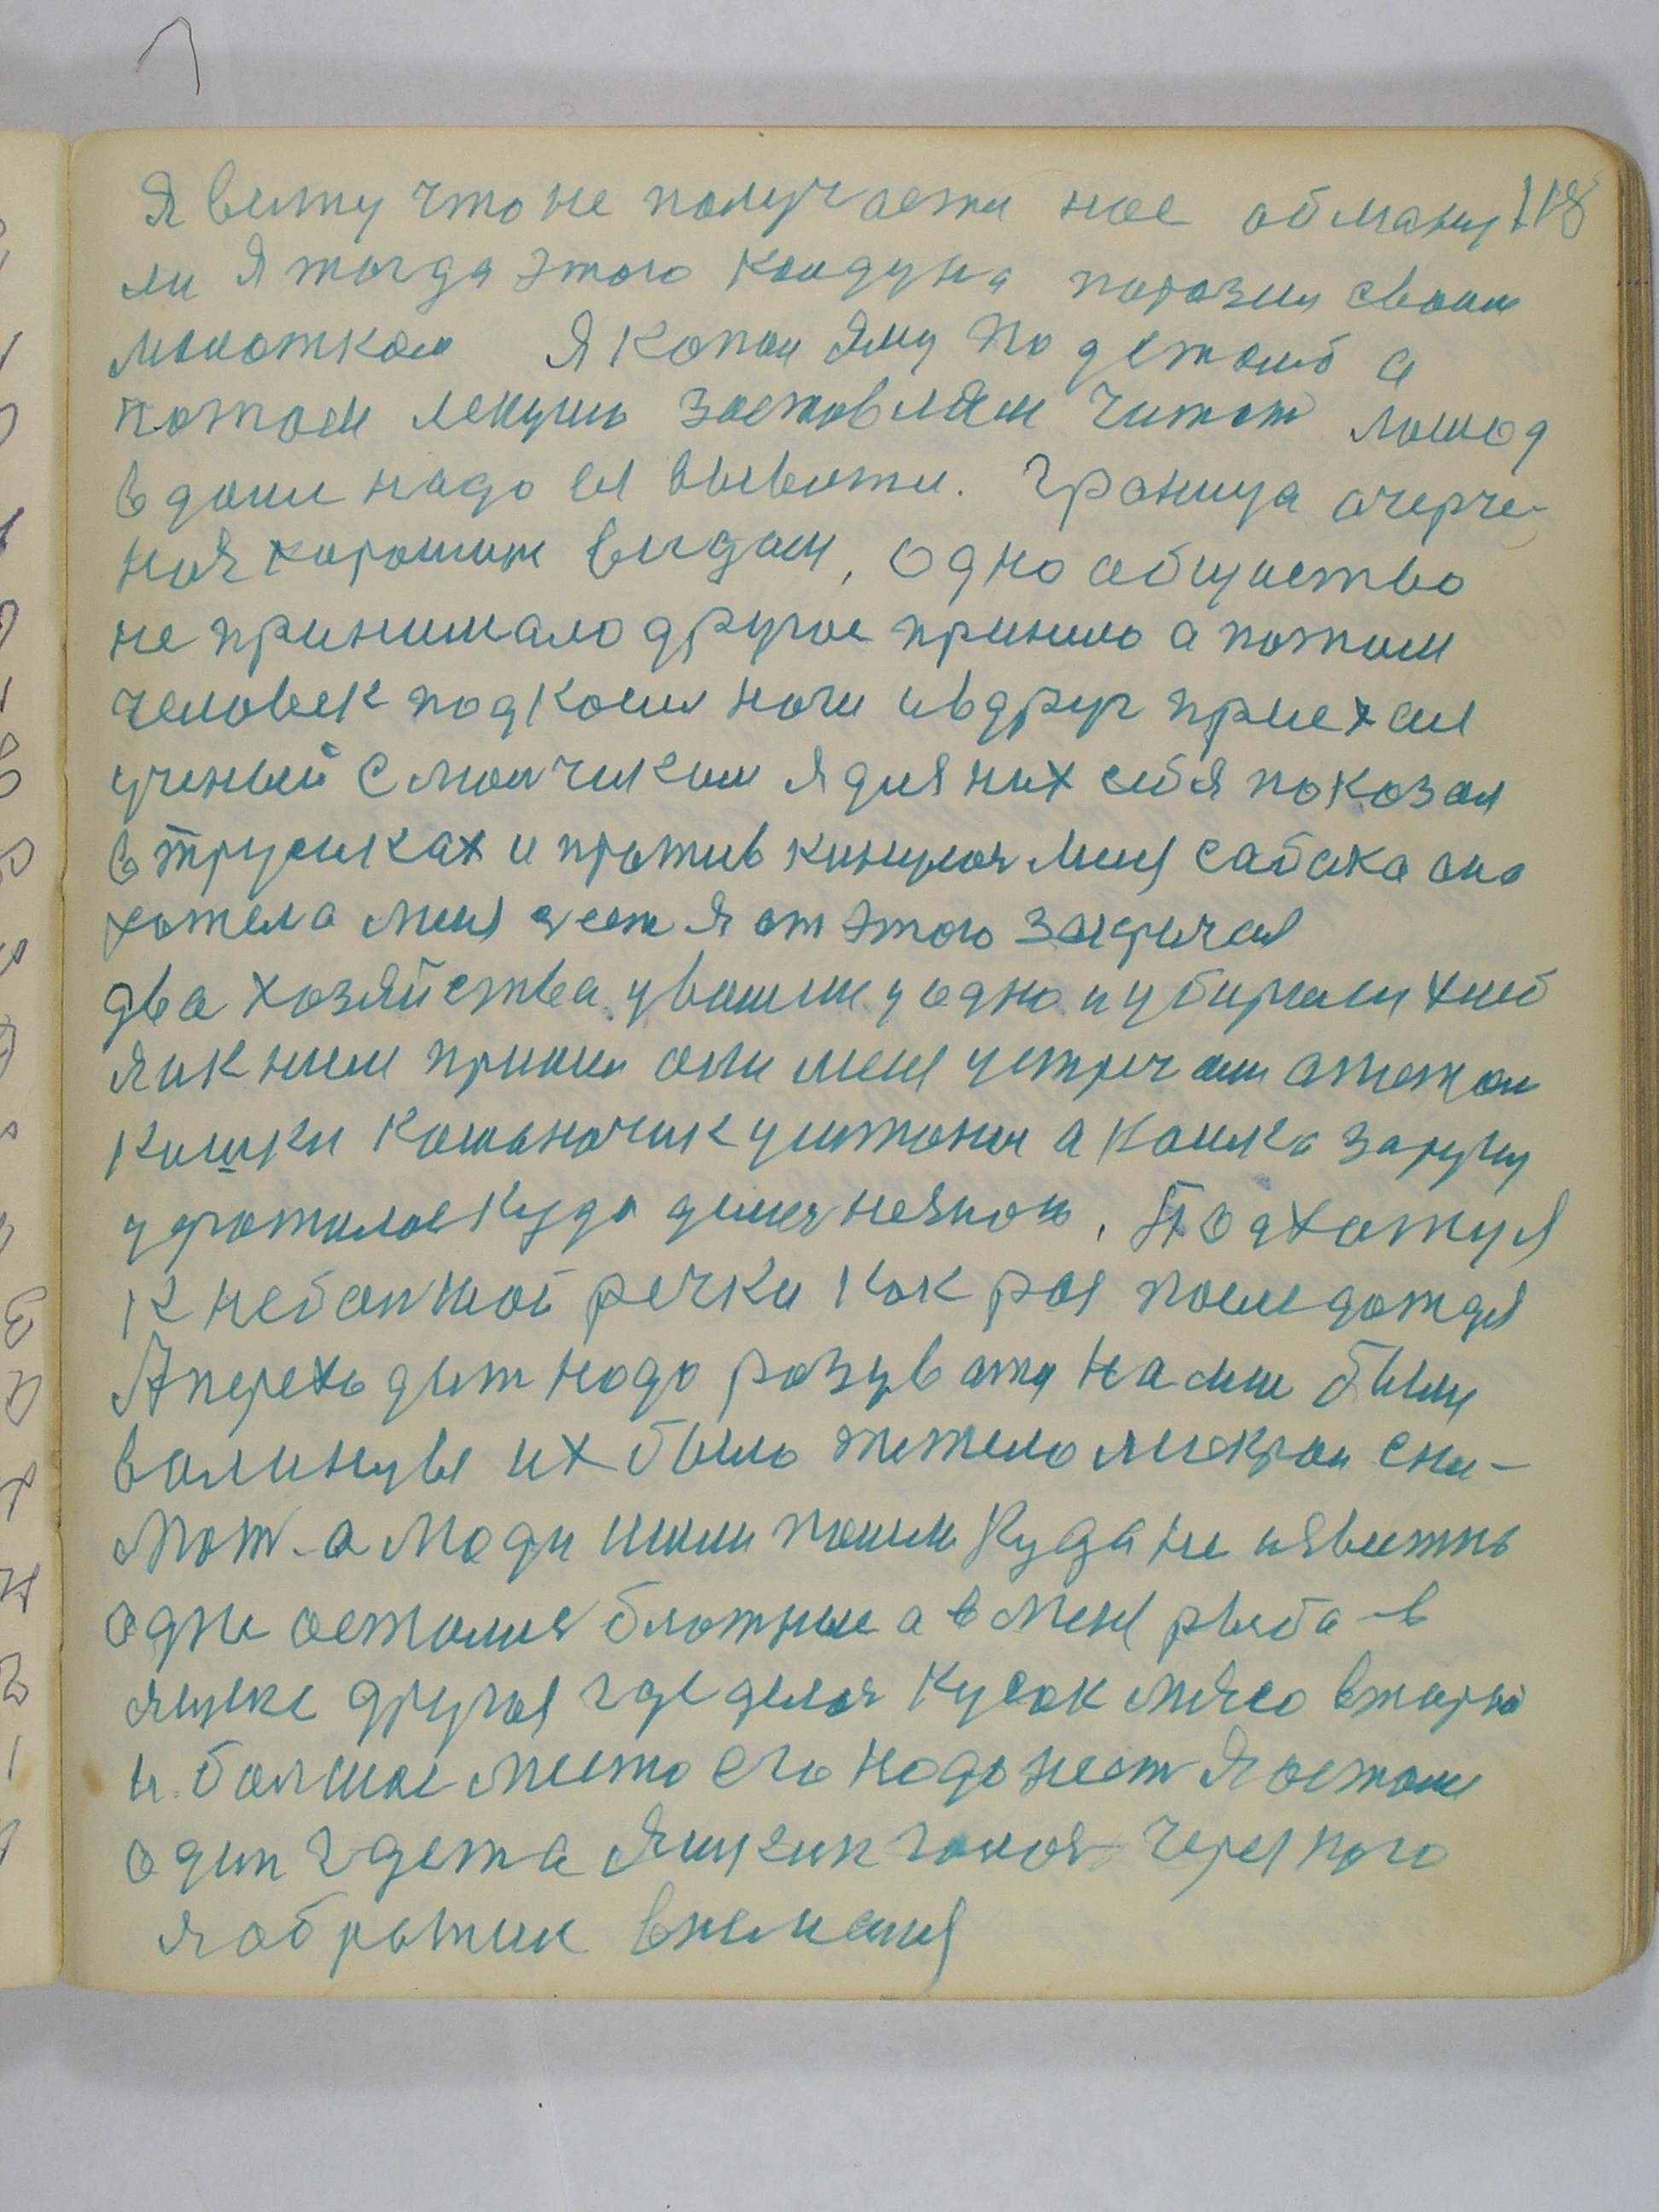 118
Я вижу что не получаетя нас обману
ли Я тогда этого колдуна поразил своим
молотком Я копал яму по детоль а
потом лекцию заставляли читат лошод
в доми надо ея вывоти. Граница очерче-
ная хорошим видам, одно общество
не принимало другое приняло а потом
человек подкосил ноги и вдруг приехал
ученый с молчиком Я для них себя показал
в трусиках и против кинулся мня сабака она
хотела мня зест Я от этого закричал
два хозяйства увошли у одно и убирали хлеб
Я ик ним пришол они меня устречали а потом
кишки кошыначик улитоныя а кошка заруку
ухротилас куда делися незнаю. Подхожу я
к небалшой речки как раз после дождя
А переходит надо разуватя на мне были
валинцы их было тяжело мокрои сни-
мат. а люди шли пошли куда не известно
одни осталися блотные а в меня рыба в
ящике другая где делоя кусок мясо втарно
и. болшое место его надо нест Я остался
один гдета ящикик голоя через кого
Я обротил внимания